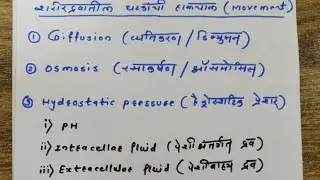 शरीरद्रवातील घटकांची हालचाल (Movement)
① Diffusion (व्यतिकरण / डिफ्युजन)
② Osmosis (रसाकर्षण / ऑसमोसिस)
③ Hydrostatic pressure (हैड्रोस्टाटिक प्रेशर)
i) PH
ii) Intracellular fluid (पेशीअंतर्गत द्रव)
iii) Extracellular fluid (पेशीबाह्य द्रव)